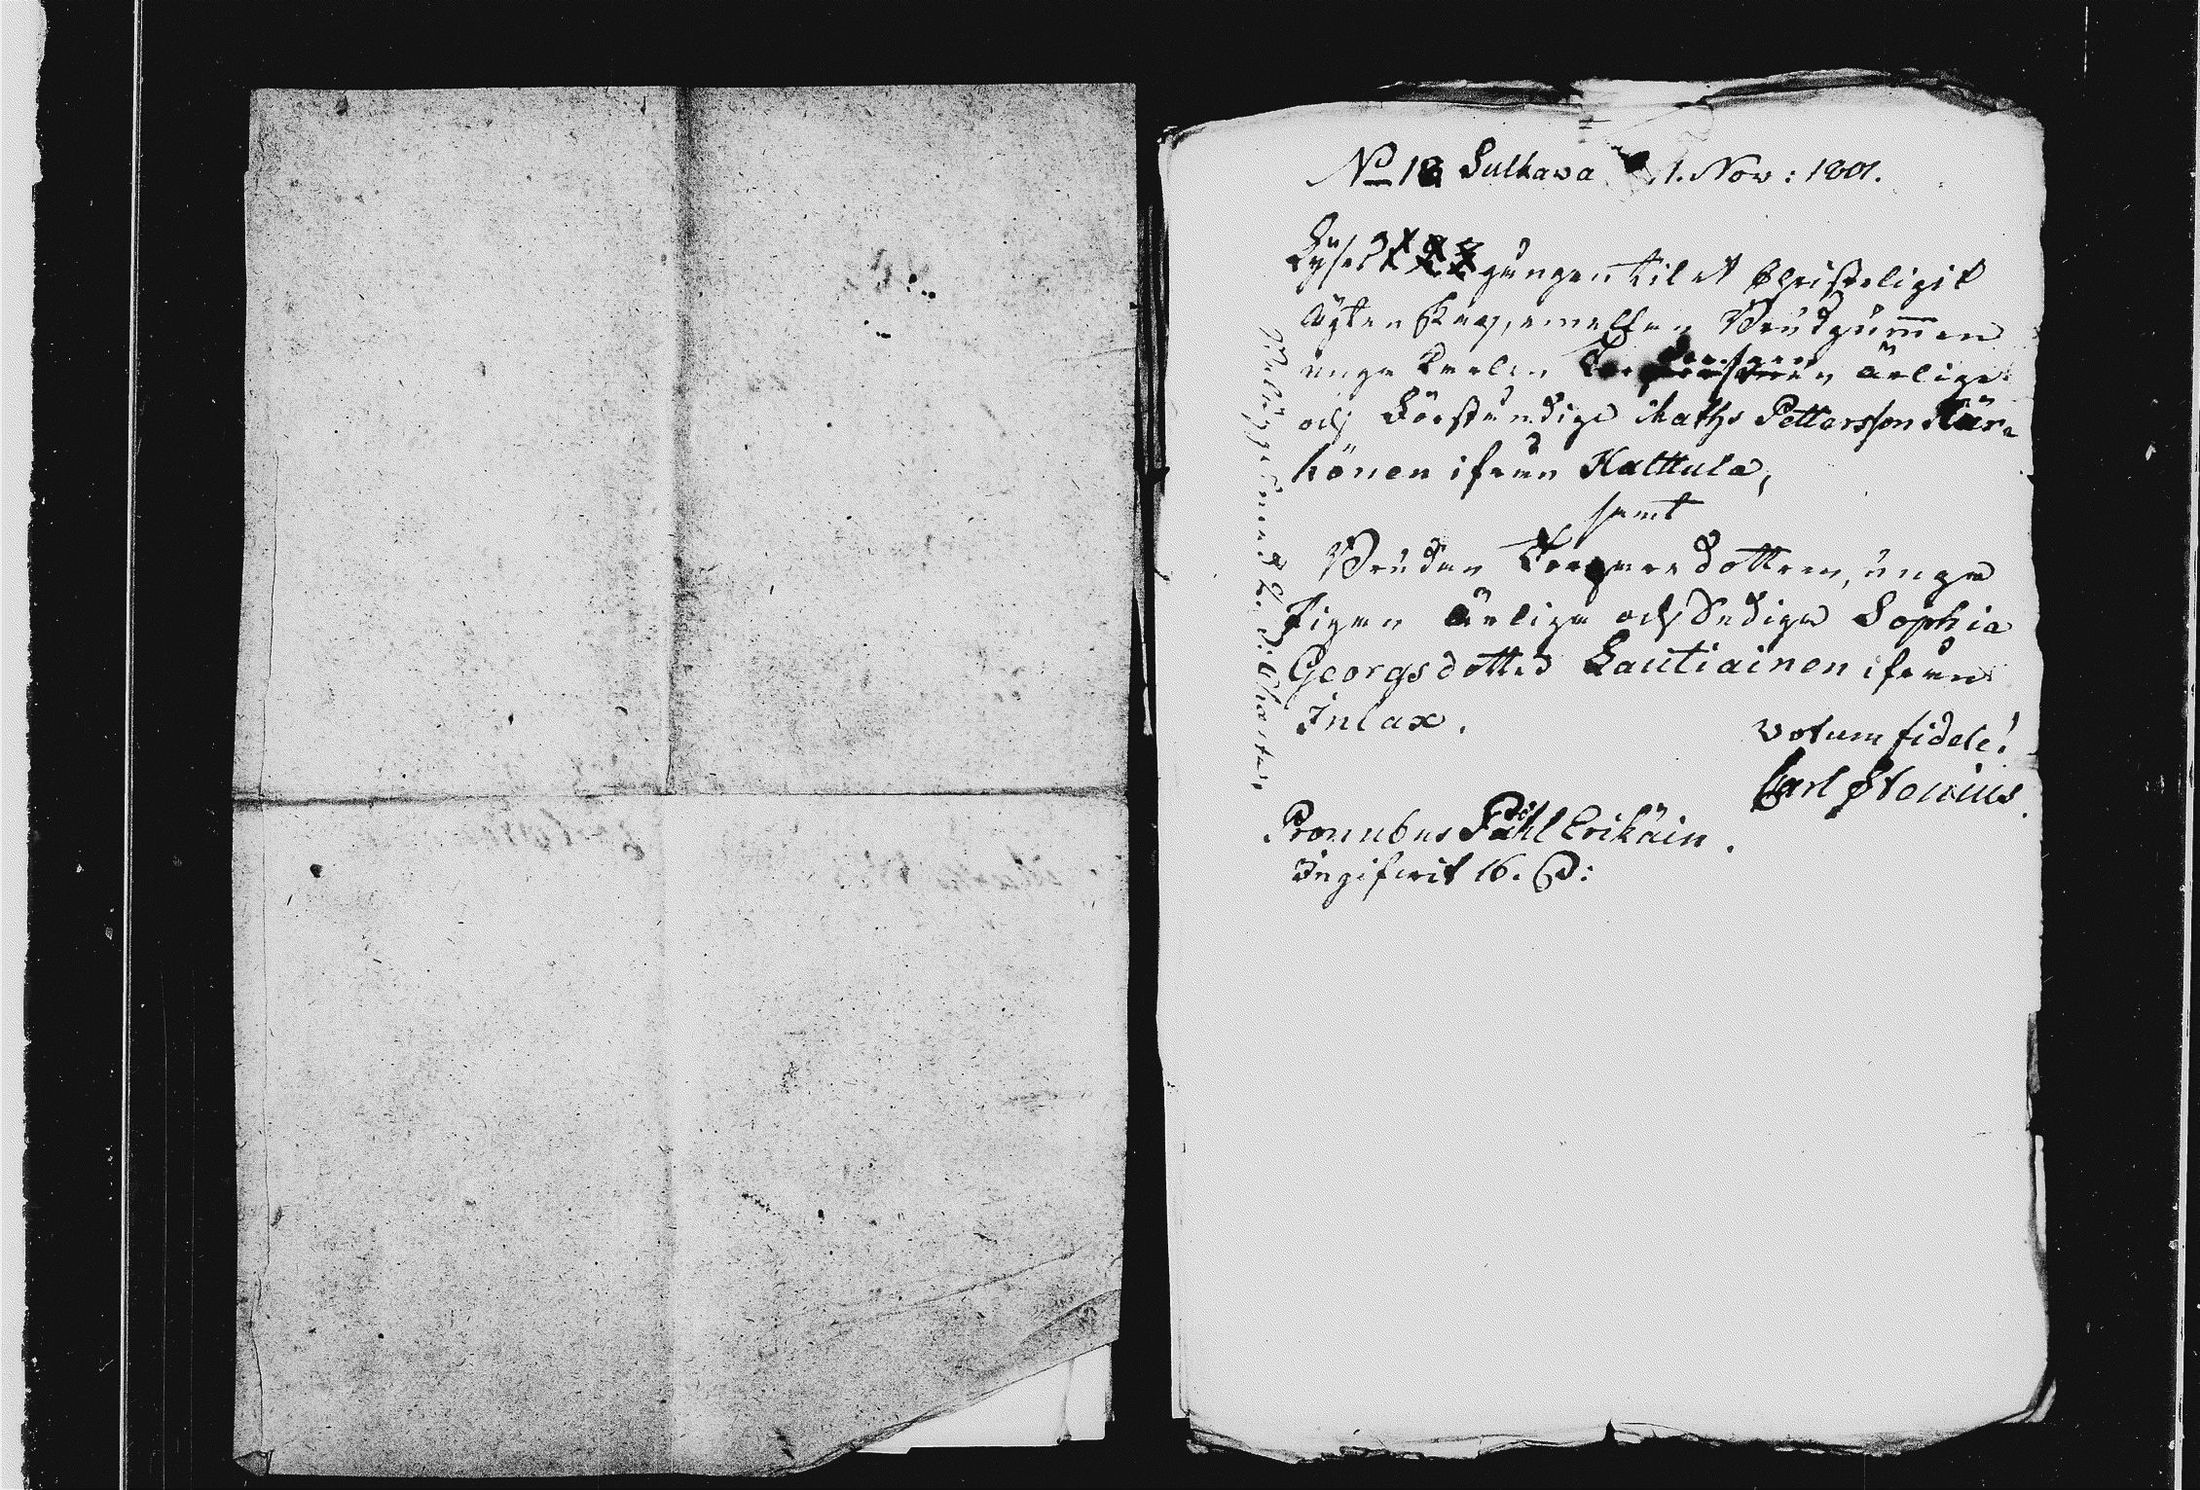 No 18 Sulkava 1. Nov: 1801.
Lyses gången til et Christeligit
Ägtenskap, emellan Brudgummen
unga Karlen ärlige
och Förståndige Maths Pettersson Kär-
hönen ifrån Kalttula,
samt
Bruden dottren, unga
Pigan ärliga och Sediga Sophia
Georgsdotter Lautiainen ifrån
Inlax.
Votum fidele!
Carl
Pronubus Påhl Erikäin.
Ingifwit 16. S: